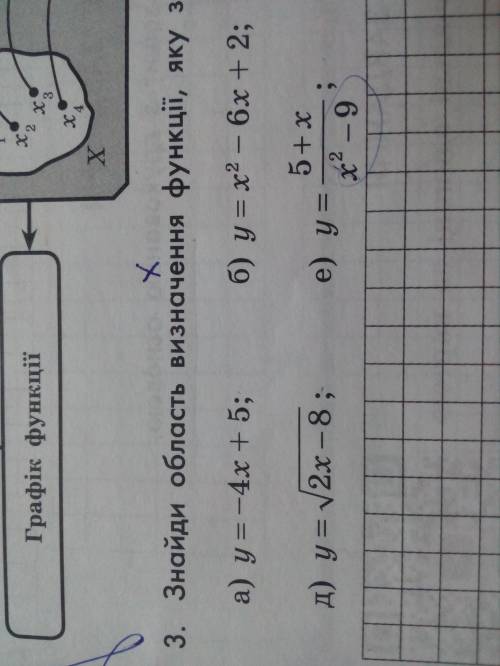 x₂
x₃
x₄
X
Графік функції
х
3. Знайди область визначення функції, яку з
а) y = −4x + 5;
б) y = x² − 6x + 2;
д) y = √(2x − 8);
е) y = (5 + x)/(x² − 9);